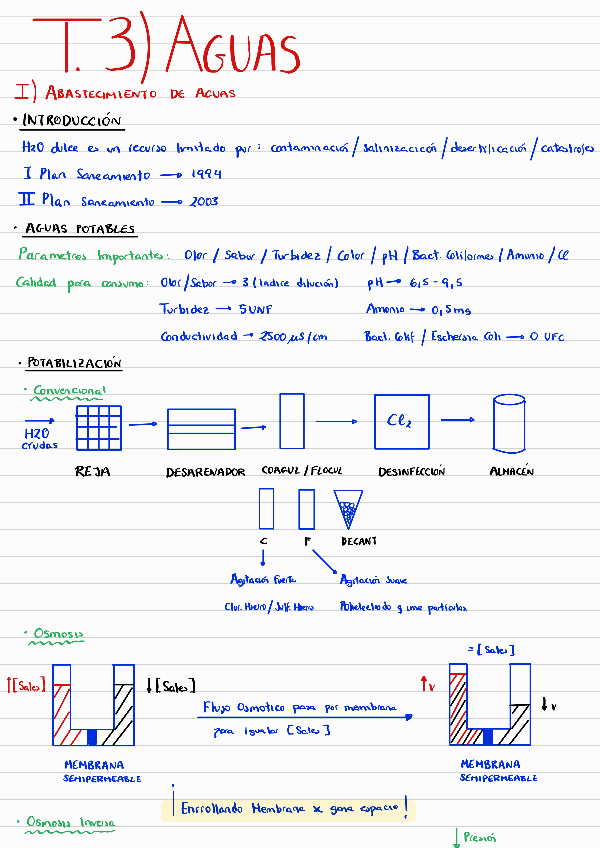 T. 3) AGUAS
I) ABASTECIMIENTO DE AGUAS
· INTRODUCCIÓN
H2O dulce es un recurso limitado por: contaminación / salinización / desertificación / catastrofes
I Plan Saneamiento → 1994
II Plan Saneamiento → 2003
· AGUAS POTABLES
Parametros Importantes: Olor / Sabor / Turbidez / Color / pH / Bact. Coliformes / Amonio / Cl
Calidad para consumo: Olor/Sabor → 3 (Indice dilución) pH → 6,5 - 9,5
Turbidez → 5 UNF Amonio → 0,5 mg
Conductividad → 2500 µS/cm Bact. Colif / Eschersia Coli → 0 UFC
· POTABILIZACIÓN
· Convencional
H2O crudas
Cl2
REJA DESARENADOR COAGUL / FLOCUL DESINFECCIÓN ALMACÉN
C F DECANT
Agitación Fuerte Agitación Suave
Clor. Hierro / Sulf. Hierro Polielectrolito q une partículas
· Osmosis
= [Sales]
↑[Sales] ↓[Sales] ↑V ↓V
Flujo Osmotico pasa por membrana
para igualar [Sales]
MEMBRANA SEMIPERMEABLE
MEMBRANA SEMIPERMEABLE
¡Enrrollando Membrana se gana espacio!
· Osmosis Inversa
↓ Presión